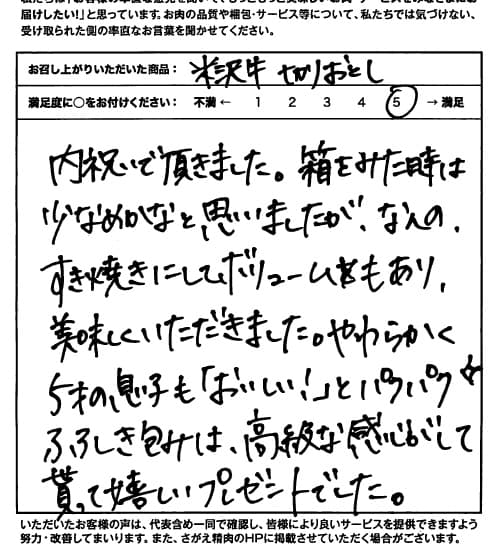 届けしたい!」と思っています。お肉の品質や梱包・サービス等について、私たちでは気づけない、
受け取られた側の率直なお言葉を聞かせてください。
お召し上がりいただいた商品: 米沢牛 切りおとし
満足度に○をお付けください: 不満 ← 1 2 3 4 5 → 満足
内祝いで頂きました。箱をみた時は
少なめかなと思いましたが、なんの、
すき焼きにしてボリュームもあり、
美味しくいただきました。やわらかく
5才の息子も「おいしい!」とパクパク
ふろしき包みは、高級な感じがして
貰って嬉しいプレゼントでした。
いただいたお客様の声は、代表含め一同で確認し、皆様により良いサービスを提供できますよう
努力・改善してまいります。また、さがえ精肉のHPに掲載させていただく場合がございます。